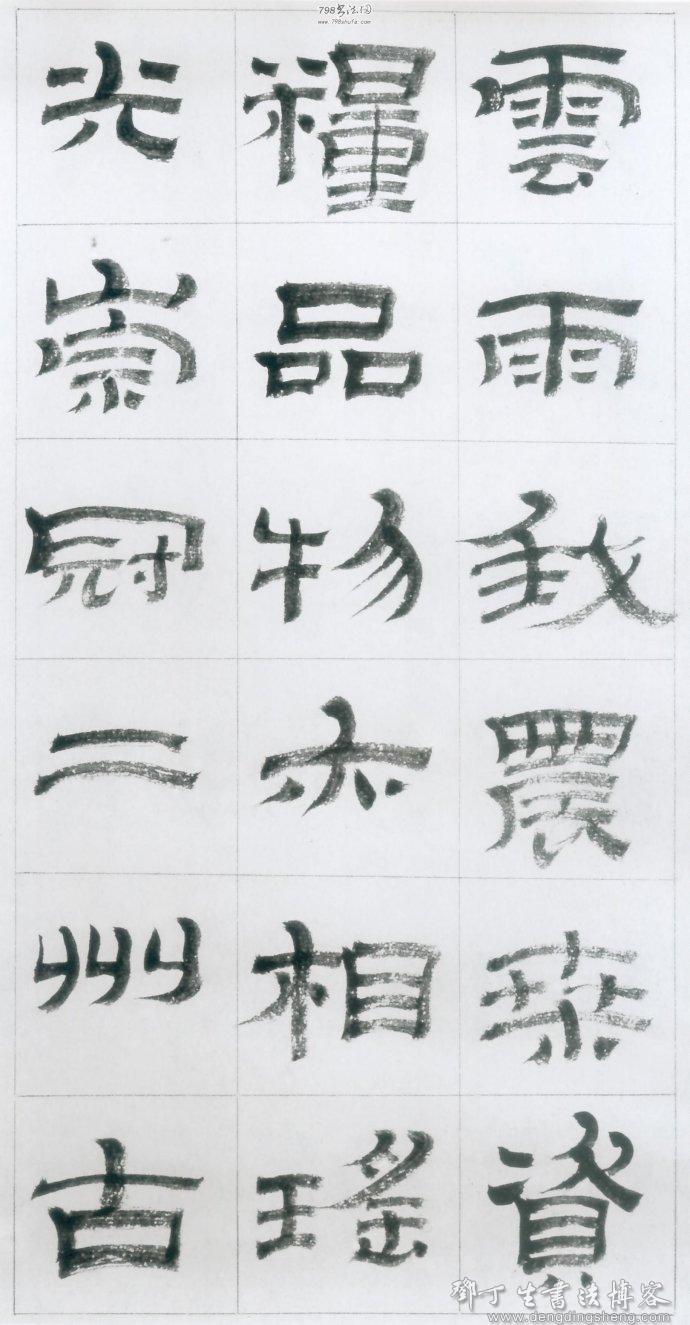 798书法网
www.798shufa.com
雲雨我農桒資
糧品物亦相瑤
光崇冠二州古
鄧丁生書法博客
www.dengdingsheng.com